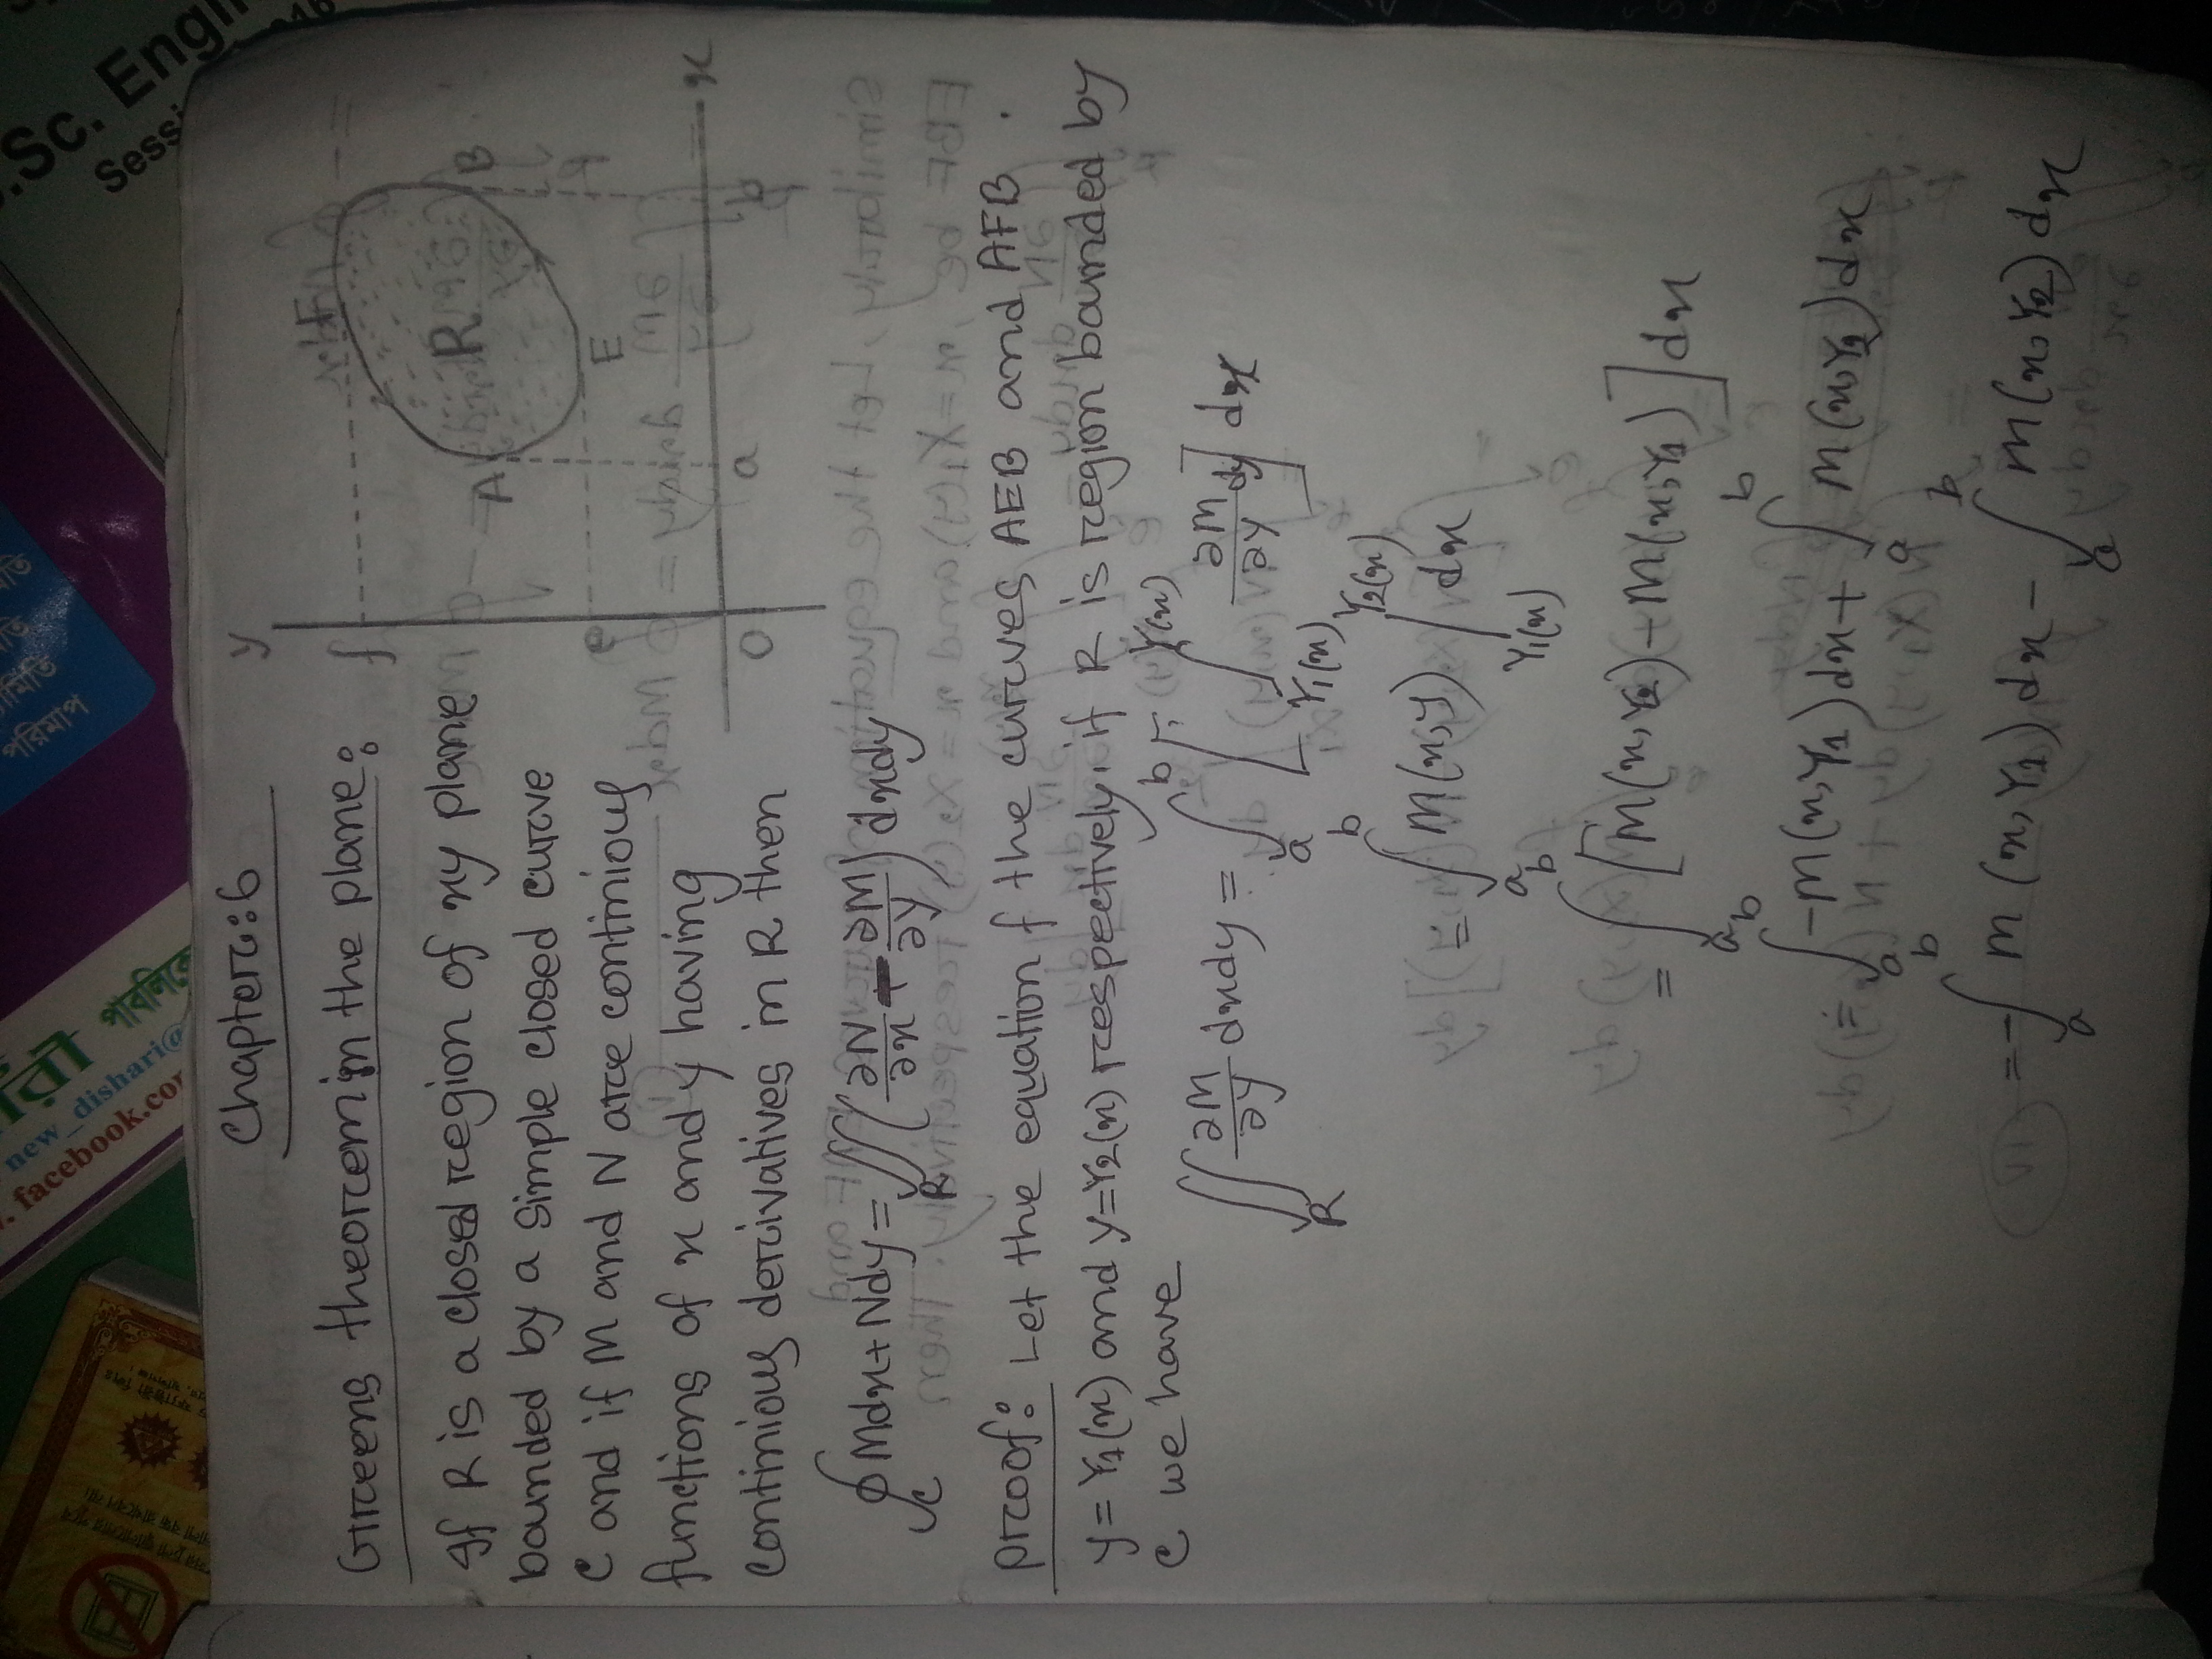 Chapter:6
Greens theorem in the plane:
If R is a closed region of xy plane
bounded by a simple closed curve
C and if M and N are continious
functions of x and y having
continious derivatives in R then
∮_C Mdx+Ndy = ∬_R (∂N/∂x - ∂M/∂y) dxdy
y
f
F
R
A
B
E
e
O
a
b
x
proof: Let the equation f the curves AEB and AFB.
y=Y₁(x) and y=Y₂(x) respectively. if R is region bounded by
C we have
∬_R ∂M/∂y dxdy = ∫_a^b [∫_{Y₁(x)}^{Y₂(x)} ∂M/∂y dy] dx
= ∫_a^b M(x,y) |_{Y₁(x)}^{Y₂(x)} dx
= ∫_a^b [M(x,Y₂) - M(x,Y₁)] dx
= ∫_a^b -M(x,Y₁)dx + ∫_a^b M(x,Y₂)dx
= -∫_a^b M(x,Y₁)dx - ∫_b^a M(x,Y₂)dx
.Sc. Engi
Sess
2016
পরিমাপ
new_dishari@
facebook.co